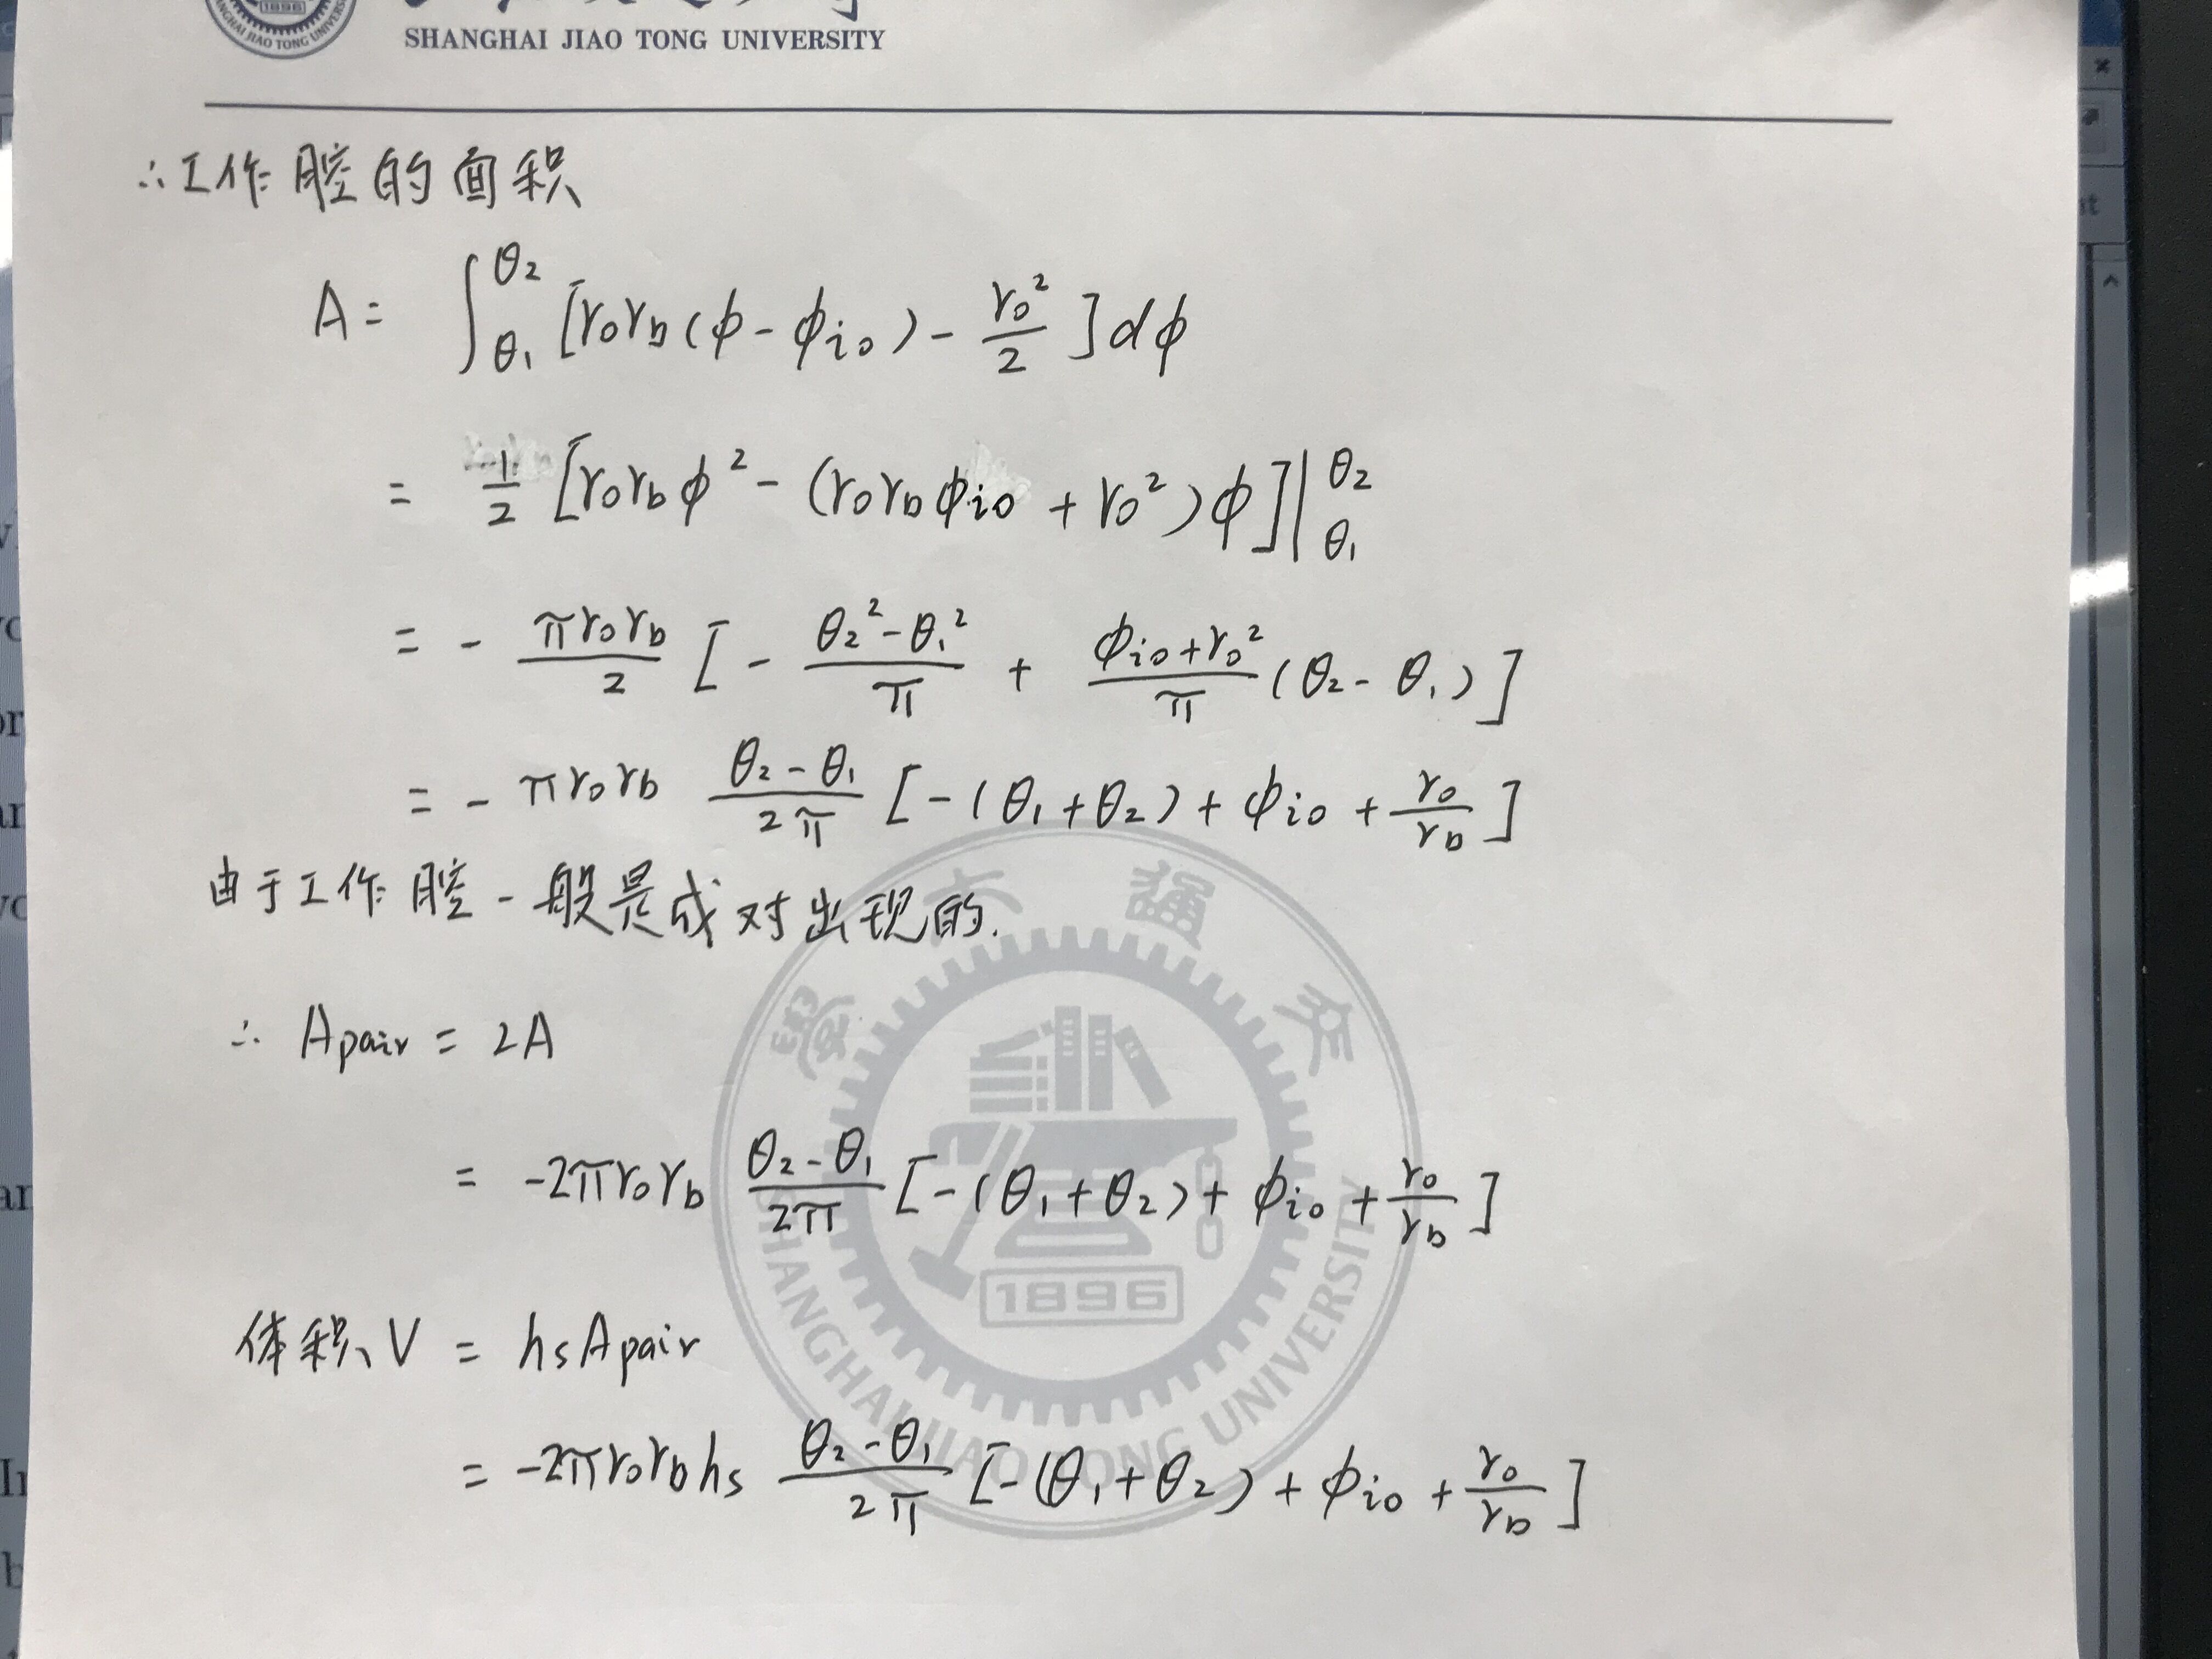 1896
JIAO TONG UNIVERSITY
SHANGHAI JIAO TONG UNIVERSITY
∴工作腔的面积
A = ∫_{θ₁}^{θ₂} [r₀r_b(φ - φ_{i0}) - r₀²/2] dφ
= 1/2 [r₀r_bφ² - (r₀r_bφ_{i0} + r₀²)φ] |_{θ₁}^{θ₂}
= - πr₀r_b/2 [- (θ₂² - θ₁²)/π + (φ_{i0} + r₀²)/π (θ₂ - θ₁)]
= - πr₀r_b (θ₂ - θ₁)/2π [-(θ₁ + θ₂) + φ_{i0} + r₀/r_b]
由于工作腔一般是成对出现的.
∴ Apair = 2A
= -2πr₀r_b (θ₂ - θ₁)/2π [-(θ₁ + θ₂) + φ_{i0} + r₀/r_b]
体积V = hsApair
= -2πr₀r_bhs (θ₂ - θ₁)/2π [-(θ₁ + θ₂) + φ_{i0} + r₀/r_b]
大 通 交
1896
SHANGHAI JIAO TONG UNIVERSITY